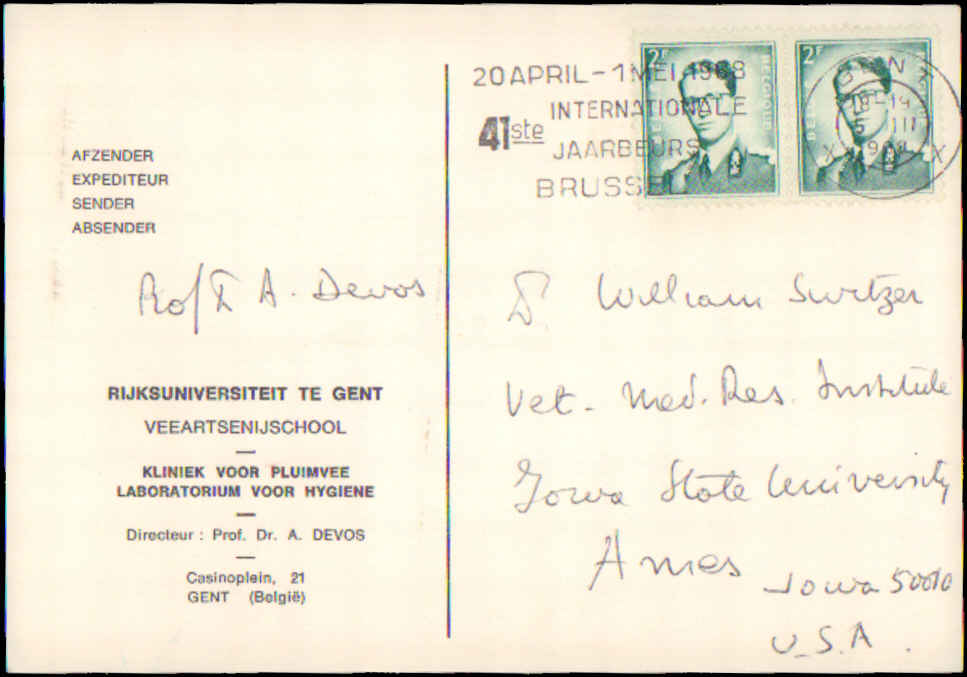 AFZENDER
EXPEDITEUR
SENDER
ABSENDER
Prof Dr A. Devos
RIJKSUNIVERSITEIT TE GENT
VEEARTSENIJSCHOOL
KLINIEK VOOR PLUIMVEE
LABORATORIUM VOOR HYGIENE
Directeur : Prof. Dr. A. DEVOS
Casinoplein, 21
GENT (België)
20 APRIL - 1 MEI 1968
41ste INTERNATIONALE
JAARBEURS
BRUSSEL
2F
2F
Dr William Switzer
Vet. Med. Res. Institute
Iowa State University
Ames Iowa 50010
U.S.A.